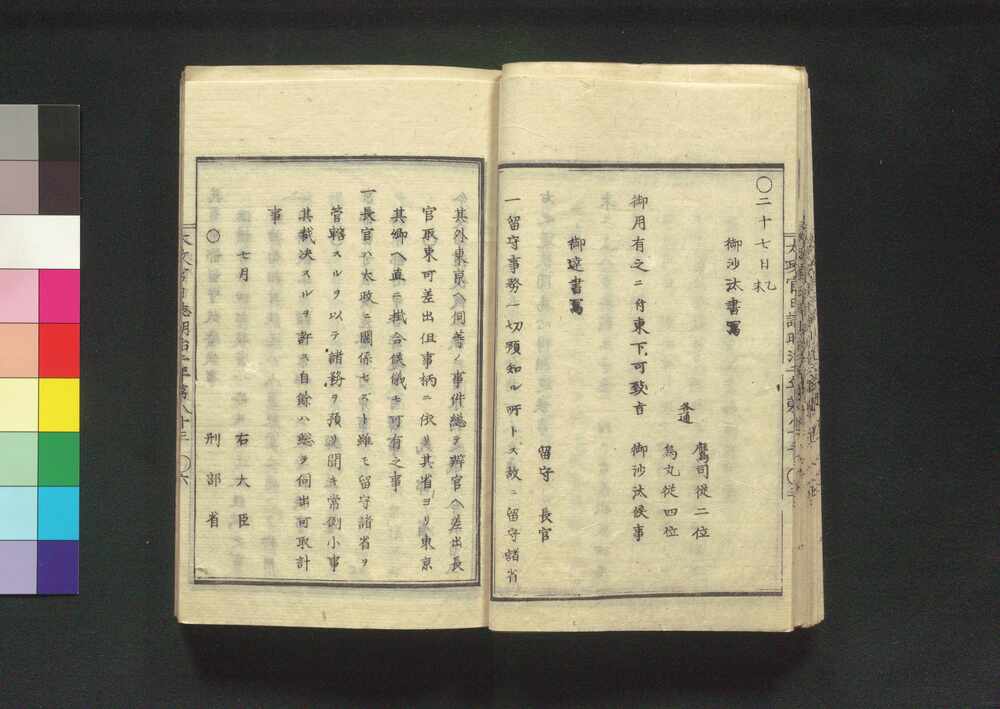 〇二十七日乙未
御沙汰書写
鷹司従二位
各通
烏丸従四位
御用有之ニ付東下可致旨 御沙汰候事
御達書写
留守 長官
一留守事務一切預知ル所トス故ニ留守諸省
其外東京ヘ伺等ノ事件総テ辨官ヘ差出長
官取束可差出但事柄ニ依リ其省ヨリ東京
其卿ヘ直ニ掛合候儀モ可有之事
一長官ハ太政ニ関係セズト雖モ留守諸省ヲ
管轄スルヲ以テ諸務ヲ預リ聞キ常例小事
其裁決スルヲ許ス自餘ハ総テ伺出可取計
事
七月 右大臣
〇 刑部省
太政官日誌明治二年第八十三 〇六